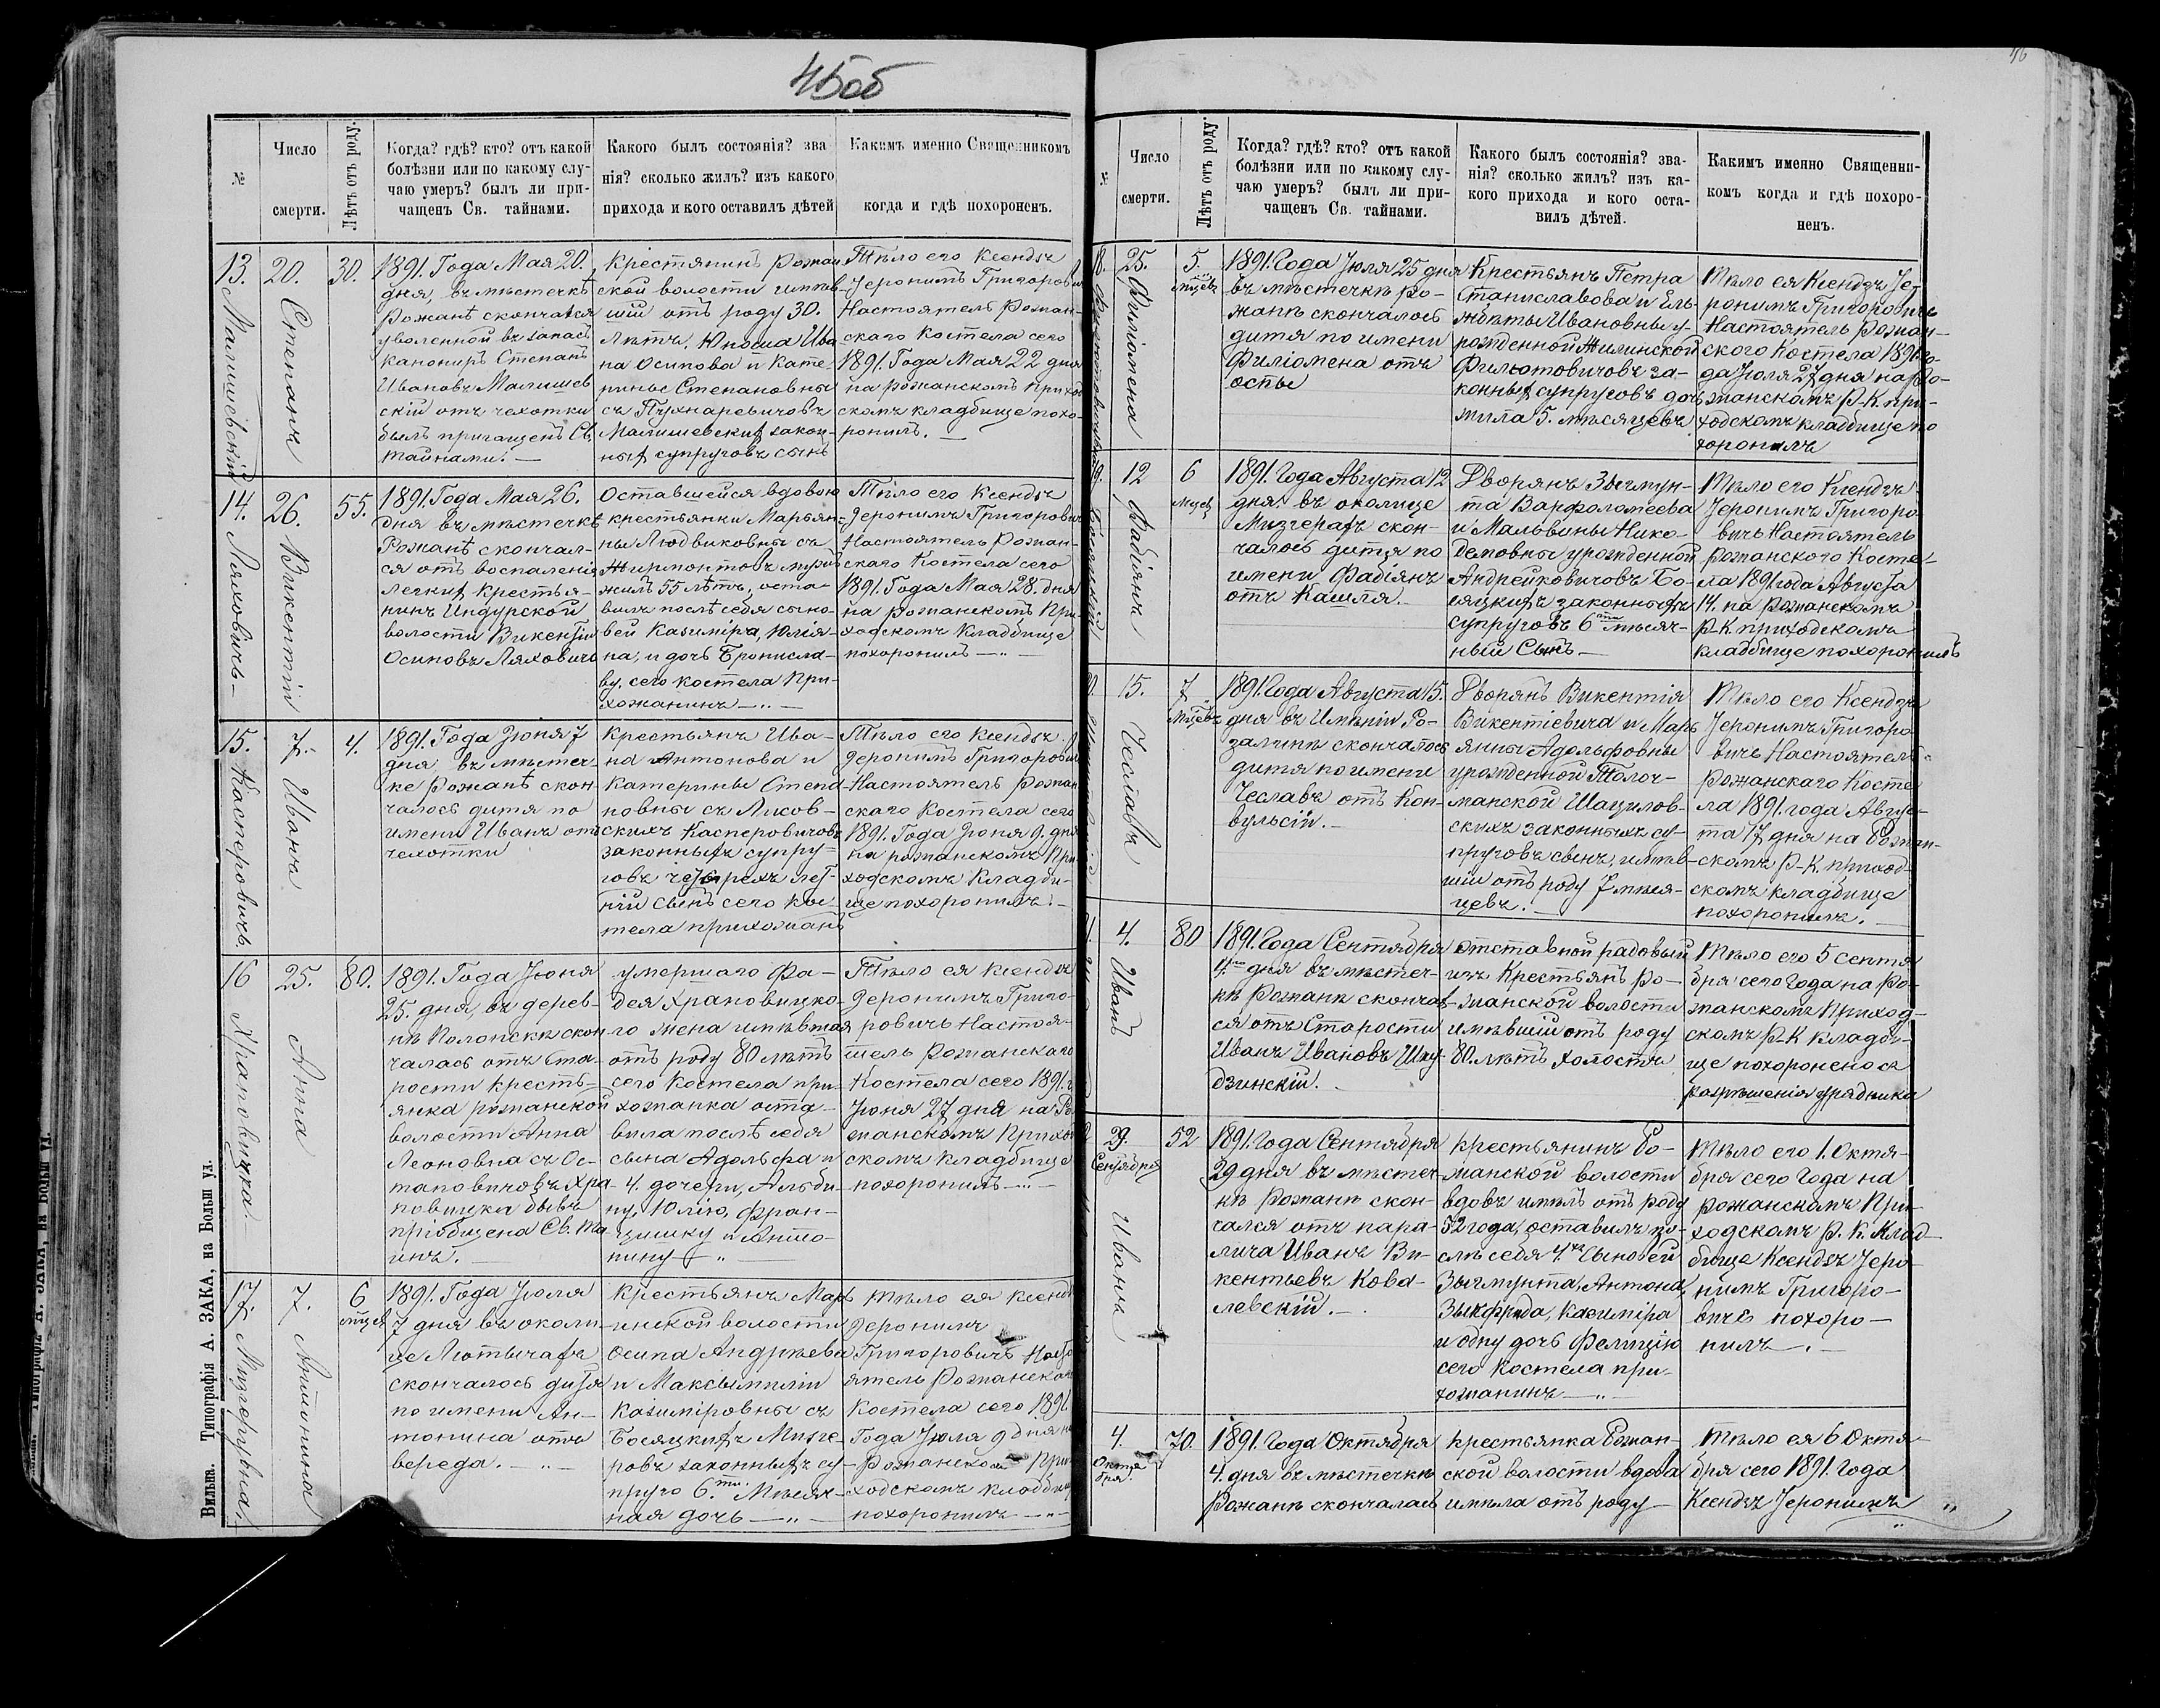 45об
46
№
Число
смерти.
Лѣтъ отъ роду.
Когда? гдѣ? кто? отъ какой
болѣзни или по какому слу-
чаю умеръ? былъ ли при-
чащенъ Св. тайнами.
Какого былъ состоянія? зва
нія? сколько жилъ? изъ какого
прихода и кого оставилъ дѣтей
Какимъ именно Священникомъ
когда и гдѣ похороненъ.
13.
Малишевскій
20.
Степанъ
30.
1891. Года Мая 20.
дня, въ мѣстечкѣ
Рожанѣ скончался
уволенной въ запасъ
канониръ Степанъ
Ивановъ Малишев
скій отъ чехотки
былъ причащенъ Св.
тайнами. —
Крестянинъ Рожан
ской волости имѣв-
шій отъ роду 30.
Лѣтъ. Юноша Ива
на Осипова и Кате-
рины Степановны
съ
Малишевскихъ закон-
ныхъ супруговъ сынъ
Тѣло его Ксендзъ
Іеронимъ Григорович
Настоятель Рожан-
скаго Костела сего
1891. Года Мая 22 дня
на рожанскомъ Приход
скомъ кладбище похо-
ронилъ. —
14.
Ляховичъ —
26.
Викентій
55.
1891. Года Мая 26.
дня въ мѣстечкѣ
Рожанѣ скончал-
ся отъ воспаленія
легкихъ крестья-
нинъ Индурской
волости Викентій
Осиповъ Ляховичъ
Оставшейся вдовою
крестьянки Марьян-
ны Людвиковны съ
Жирмонтовъ мужъ
жилъ 55 лѣтъ, оста-
вилъ послѣ себя сыно-
вей Казиміра, Юлія-
на, и дочь Бронисла-
ву. сего костела при-
хожанинъ —„—
Тѣло его Ксендзъ
Іеронимъ Григорович
Настоятель Рожан-
скаго Костела сего
1891. Года Мая 28. дня
на рожанскомъ При
ходскомъ Кладбище
похоронилъ —„—
15.
Касперовичъ.
7.
Иванъ
4.
1891. Года Іюня 7
дня въ мѣстеч-
ке Рожанѣ скон
чалось дитя по
имени Иванъ отъ
чехотки
Крестьянъ Ива-
на Антонова и
Катерины Степа
новны съ Лисов-
скихъ Касперовичовъ
законныхъ супру-
говъ четырехъ лет-
ній сынъ сего кос-
тела прихожанъ
Тѣло его Ксендзъ
Іеронимъ Григорович
Настоятель Рожан
скаго Костела сего
1891. Года Іюня 9. дня
на рожанскомъ При
ходскомъ Кладби-
ще похоронилъ. —
16
Храповицка.
25.
Анна
80.
1891. Года Іюня
25. дня, въ дерев-
нѣ Полонски скон-
чалась отъ ста-
рости кресть-
янка рожанской
волости Анна
Леоновна съ Ос-
таповичовъ Хра
повицка бывъ
пріобщена Св. Та
инъ. —
умершаго Фа-
дея Храповицко-
го жена имѣвшая
отъ роду 80 лѣтъ
сего Костела при-
хожанка оста-
вила послѣ себя
сына Адольфа и
4. дочери, Альби-
ну, Юлію, Фран-
цишку и Анто-
нину —„
Тѣло ея Ксендзъ
Іеронимъ Григо-
ровичъ Настоя-
тель Рожанскаго
Костела сего 1891. г
Іюня 27 дня на Ро
жанскомъ Приход
скомъ Кладбище
похоронилъ —„—
17.
Мизгеровна.
7.
Антонина
6
мцев
1891. Года Іюля
7 дня въ околи-
це Лютычахъ
скончалось дитя
по имени Ан-
тонина отъ
вереда. —„—
Крестьянъ Мар
инской волости
Осипа Андрѣева
и Максымиліи
Казиміровны съ
Босяцкихъ Мизге-
ровъ законныхъ су-
пруго 6.ти Мѣсяч-
ная дочь —„—
Тѣло ея Ксендз
Іеронимъ
Григоровичъ Насто
ятель Рожанскаго
Костела сего 1891.
Года Іюля 9 дня на
Рожанском При
ходскомъ кладбищ
похоронилъ —„—
Вильна. Типографія А. ЗАКА, на Больш ул.
№
Число
смерти.
Лѣтъ отъ роду.
Когда? гдѣ? кто? отъ какой
болѣзни или по какому слу-
чаю умеръ? былъ ли при-
чащенъ Св. тайнами.
Какого былъ состоянія? зва-
нія? сколько жилъ? изъ ка-
кого прихода и кого оста-
вилъ дѣтей.
Какимъ именно Священни-
комъ когда и гдѣ похоро-
ненъ.
25.
Филіомена
5.
мцевъ
1891. Года Іюля 25 дня
въ мѣстечкѣ Ро-
жанѣ скончалось
дитя по имени
Филіомена отъ
оспы
Крестьянъ Петра
Станиславова и Ель-
жбеты Ивановны у-
рожденной Жилинской
Фильотовичовъ за-
конныхъ супруговъ дочь
жила 5. мѣсяцевъ
Тѣло ея Ксендзъ Іе-
ронимъ Григоровичъ
Настоятель рожан-
скаго Костела 1891 го-
да Іюля 27 дня на Ро-
жанскомъ Р-К. при-
ходскомъ кладбище по
хоронилъ
12
Фабіянъ
6
мцев
1891. Года Августа 12
дня въ околице
Мизгерахъ скон-
чалось дитя по
имени Фабіянъ
отъ Кашля.
Дворянъ Зыгмун-
та Варфоломеева
и Мальвины Нико-
демовны урожденной
Андрейковичовъ Бо-
сяцкихъ законныхъ
супруговъ 6ти мѣсяч-
ный Сынъ —
Тѣло его Ксендзъ
Іеронимъ Григоро
вичъ Настоятель
рожанскаго Косте-
ла 1891 года Августа
14. на Рожанскомъ
Р-К. приходскомъ
кладбище похоронилъ
15.
Чеславъ
7
мцевъ
1891. Года Августа 15.
дня въ Имѣніи Ро-
залинѣ скончалось
дитя по имени
Чеславъ отъ Кон-
вульсій. —
Дворянъ Викентія
Викентіевича и Марь
янны Адольфовны
урожденной Толоч-
манской Шацилов-
скихъ законныхъ су-
пруговъ сынъ, имѣв-
шій отъ роду 7 мѣся-
цевъ. —
Тѣло его Ксендзъ
Іеронимъ Григоро
вичъ Настоятель
Рожанскаго Косте
ла 1891. года Авгус-
та 17 дня на Рожан-
скомъ Р-К. приход-
скомъ кладбище
похоронилъ. —
4.
Иванъ
80
1891. Года Сентября
4. дня въ мѣстеч-
кѣ Рожанѣ скончал-
ся отъ Старости
Иванъ Ивановъ Шу-
дзинскій.
отставной радовый
изъ Крестьянъ Ро-
жанской волости
имѣвшій отъ роду
80. лѣтъ холостъ
Тѣло его 5 сентя
бря сего Года на Ро-
жанскомъ Приход-
скомъ Р-К Кладби-
ще похоронено съ
разрѣшенія урядника
29.
Сентября
Иванъ
52
1891. Года Сентября
29 дня въ мѣстеч-
кѣ Рожанѣ скон-
чался отъ пара-
лича Иванъ Ви-
кентьевъ Кова-
левскій. —
крестьянинъ Ро-
жанской волости
вдовъ имѣлъ отъ роду
52 года, оставилъ по-
слѣ себя 4. сыновей
Зыгмунта, Антона,
Зыкфрида, Казиміра
и одну дочь Фелицію
сего Костела при-
хожанинъ —„—
Тѣло его 1. Октя-
бря сего Года на
рожанскомъ При-
ходскомъ Р. К. Клад-
бище Ксендзъ Іеро
нимъ Григоро-
вичъ похоро-
нилъ —. —
4.
Октя
бря.
70.
1891. Года Октября
4. дня въ мѣстечкѣ
Рожанѣ скончалась
крестьянка Рожан-
ской волости вдова
имѣла отъ роду —
Тѣло ея 6 Октя
бря сего 1891. Года
Ксендзъ Іеронимъ